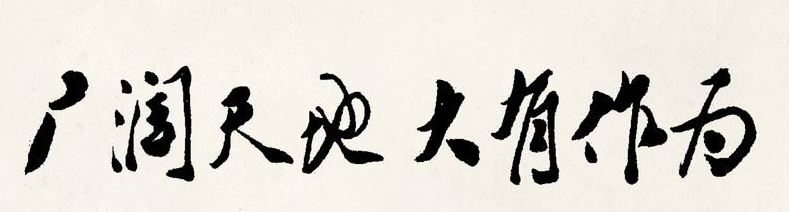 广阔天地 大有作为